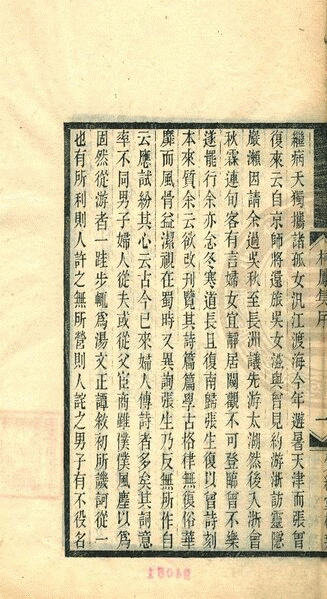 繼病夭獨攜諸孤女汎江渡海今年遊暑天津而張曾
復來云自京師將還旅吳女滋與曾見約游浙訪靈隱
嚴瀨因請余過吳秋至長洲議先游太湖然後入浙會
秋霖連旬客有言婦女宜靜居闚觀不可登聽曾不樂
遂罷行余亦念冬寒道長且復南歸張生復以曾詩刻
本來質余云欲改刊覽其詩篇篇學古格律無復俗華
靡而風骨益潔視在蜀時又異詢張生乃反無所作曰
云應試紛其心云古今已來婦人傳詩者多矣其詞意
率不同男子婦人從夫或從父宦商雖僕僕風塵以為
固然從游者一跬步輒為湯文正譚敘初所譏訶從一
也有所利則人許之無所營則人詫之男子有不役名